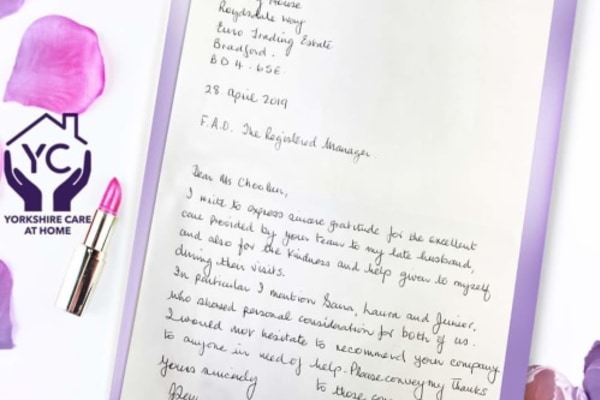 House
Roydsdale Way
Euro Trading Estate
Bradford.
BD4. 6SE.
28 April 2019
F.A.O. The Registered Manager
Dear Ms
I write to express sincere gratitude for the excellent
care provided by your team to my late husband,
and also for the kindness and help given to myself
during their visits.
In particular I mention Sara, Laura and Junior,
who showed personal consideration for both of us.
I would not hesitate to recommend your company
to anyone in need of help. Please convey my thanks
to those
Yours sincerely
YC
YORKSHIRE CARE
AT HOME